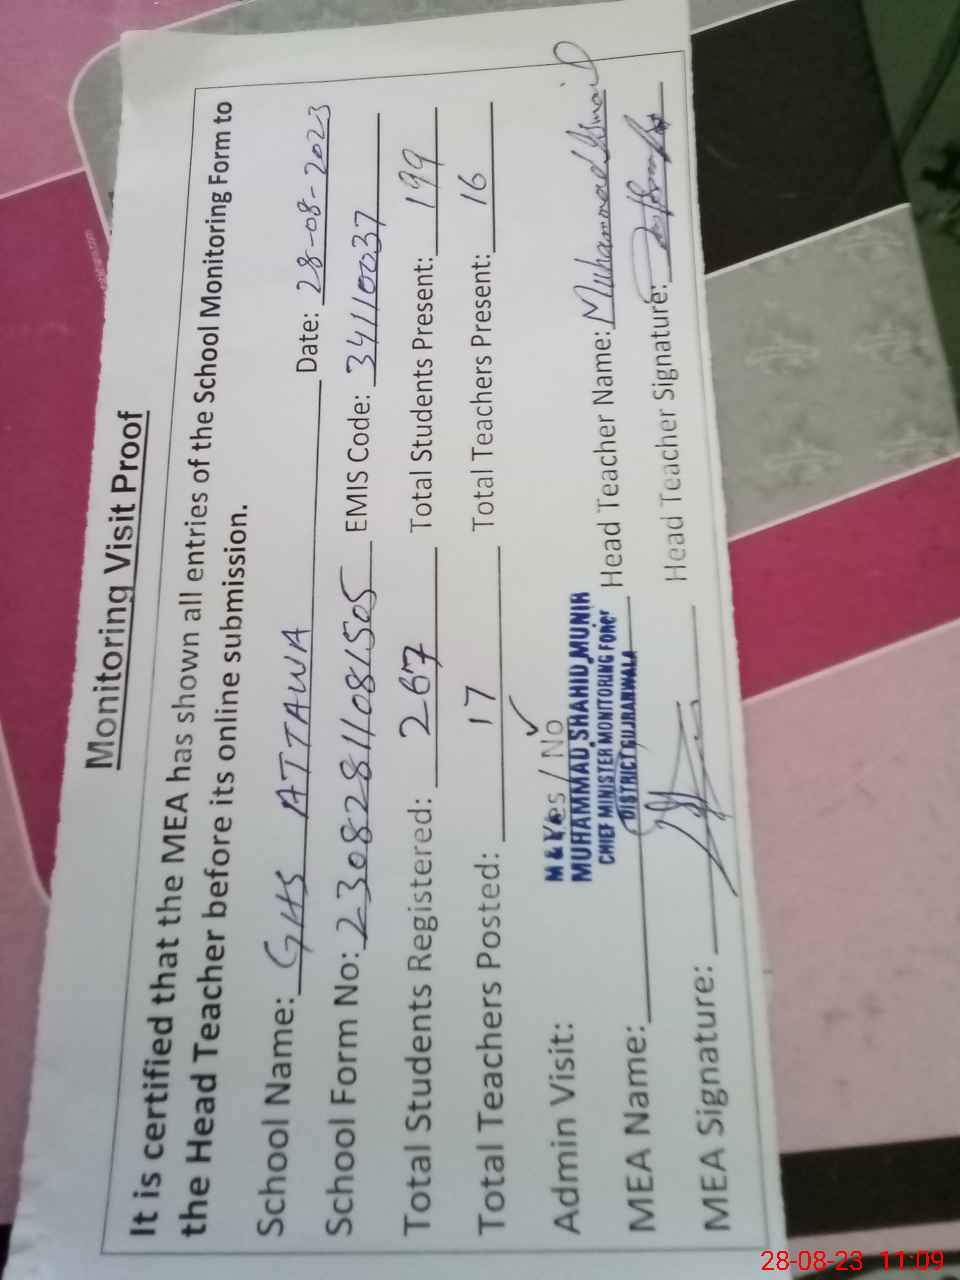 Monitoring Visit Proof
It is certified that the MEA has shown all entries of the School Monitoring Form to
the Head Teacher before its online submission.
School Name: GHS ATTAWA Date: 28-08-2023
School Form No: 23082811081505 EMIS Code: 34110037
Total Students Registered: 267 Total Students Present: 199
Total Teachers Posted: 17 Total Teachers Present: 16
Admin Visit: Yes / No ✓
M & E
MUHAMMAD SHAHID MUNIR
CHIEF MINISTER MONITORING FORCE
DISTRICT GUJRANWALA
MEA Name: Head Teacher Name: Muhammad Ismail
MEA Signature: Head Teacher Signature:
28-08-23 11:09